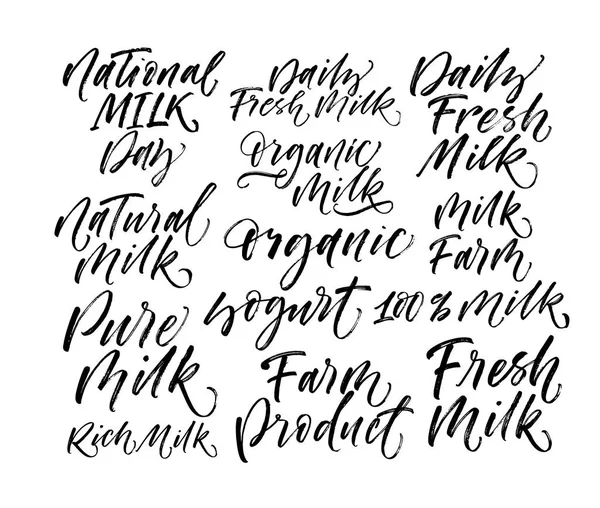 National
MILK
Day
Natural
Milk
Pure
Milk
Rich Milk
Daily
Fresh Milk
Organic
Milk
Organic
yogurt
Farm
Product
Daily
Fresh
Milk
Milk
Farm
100% Milk
Fresh
Milk